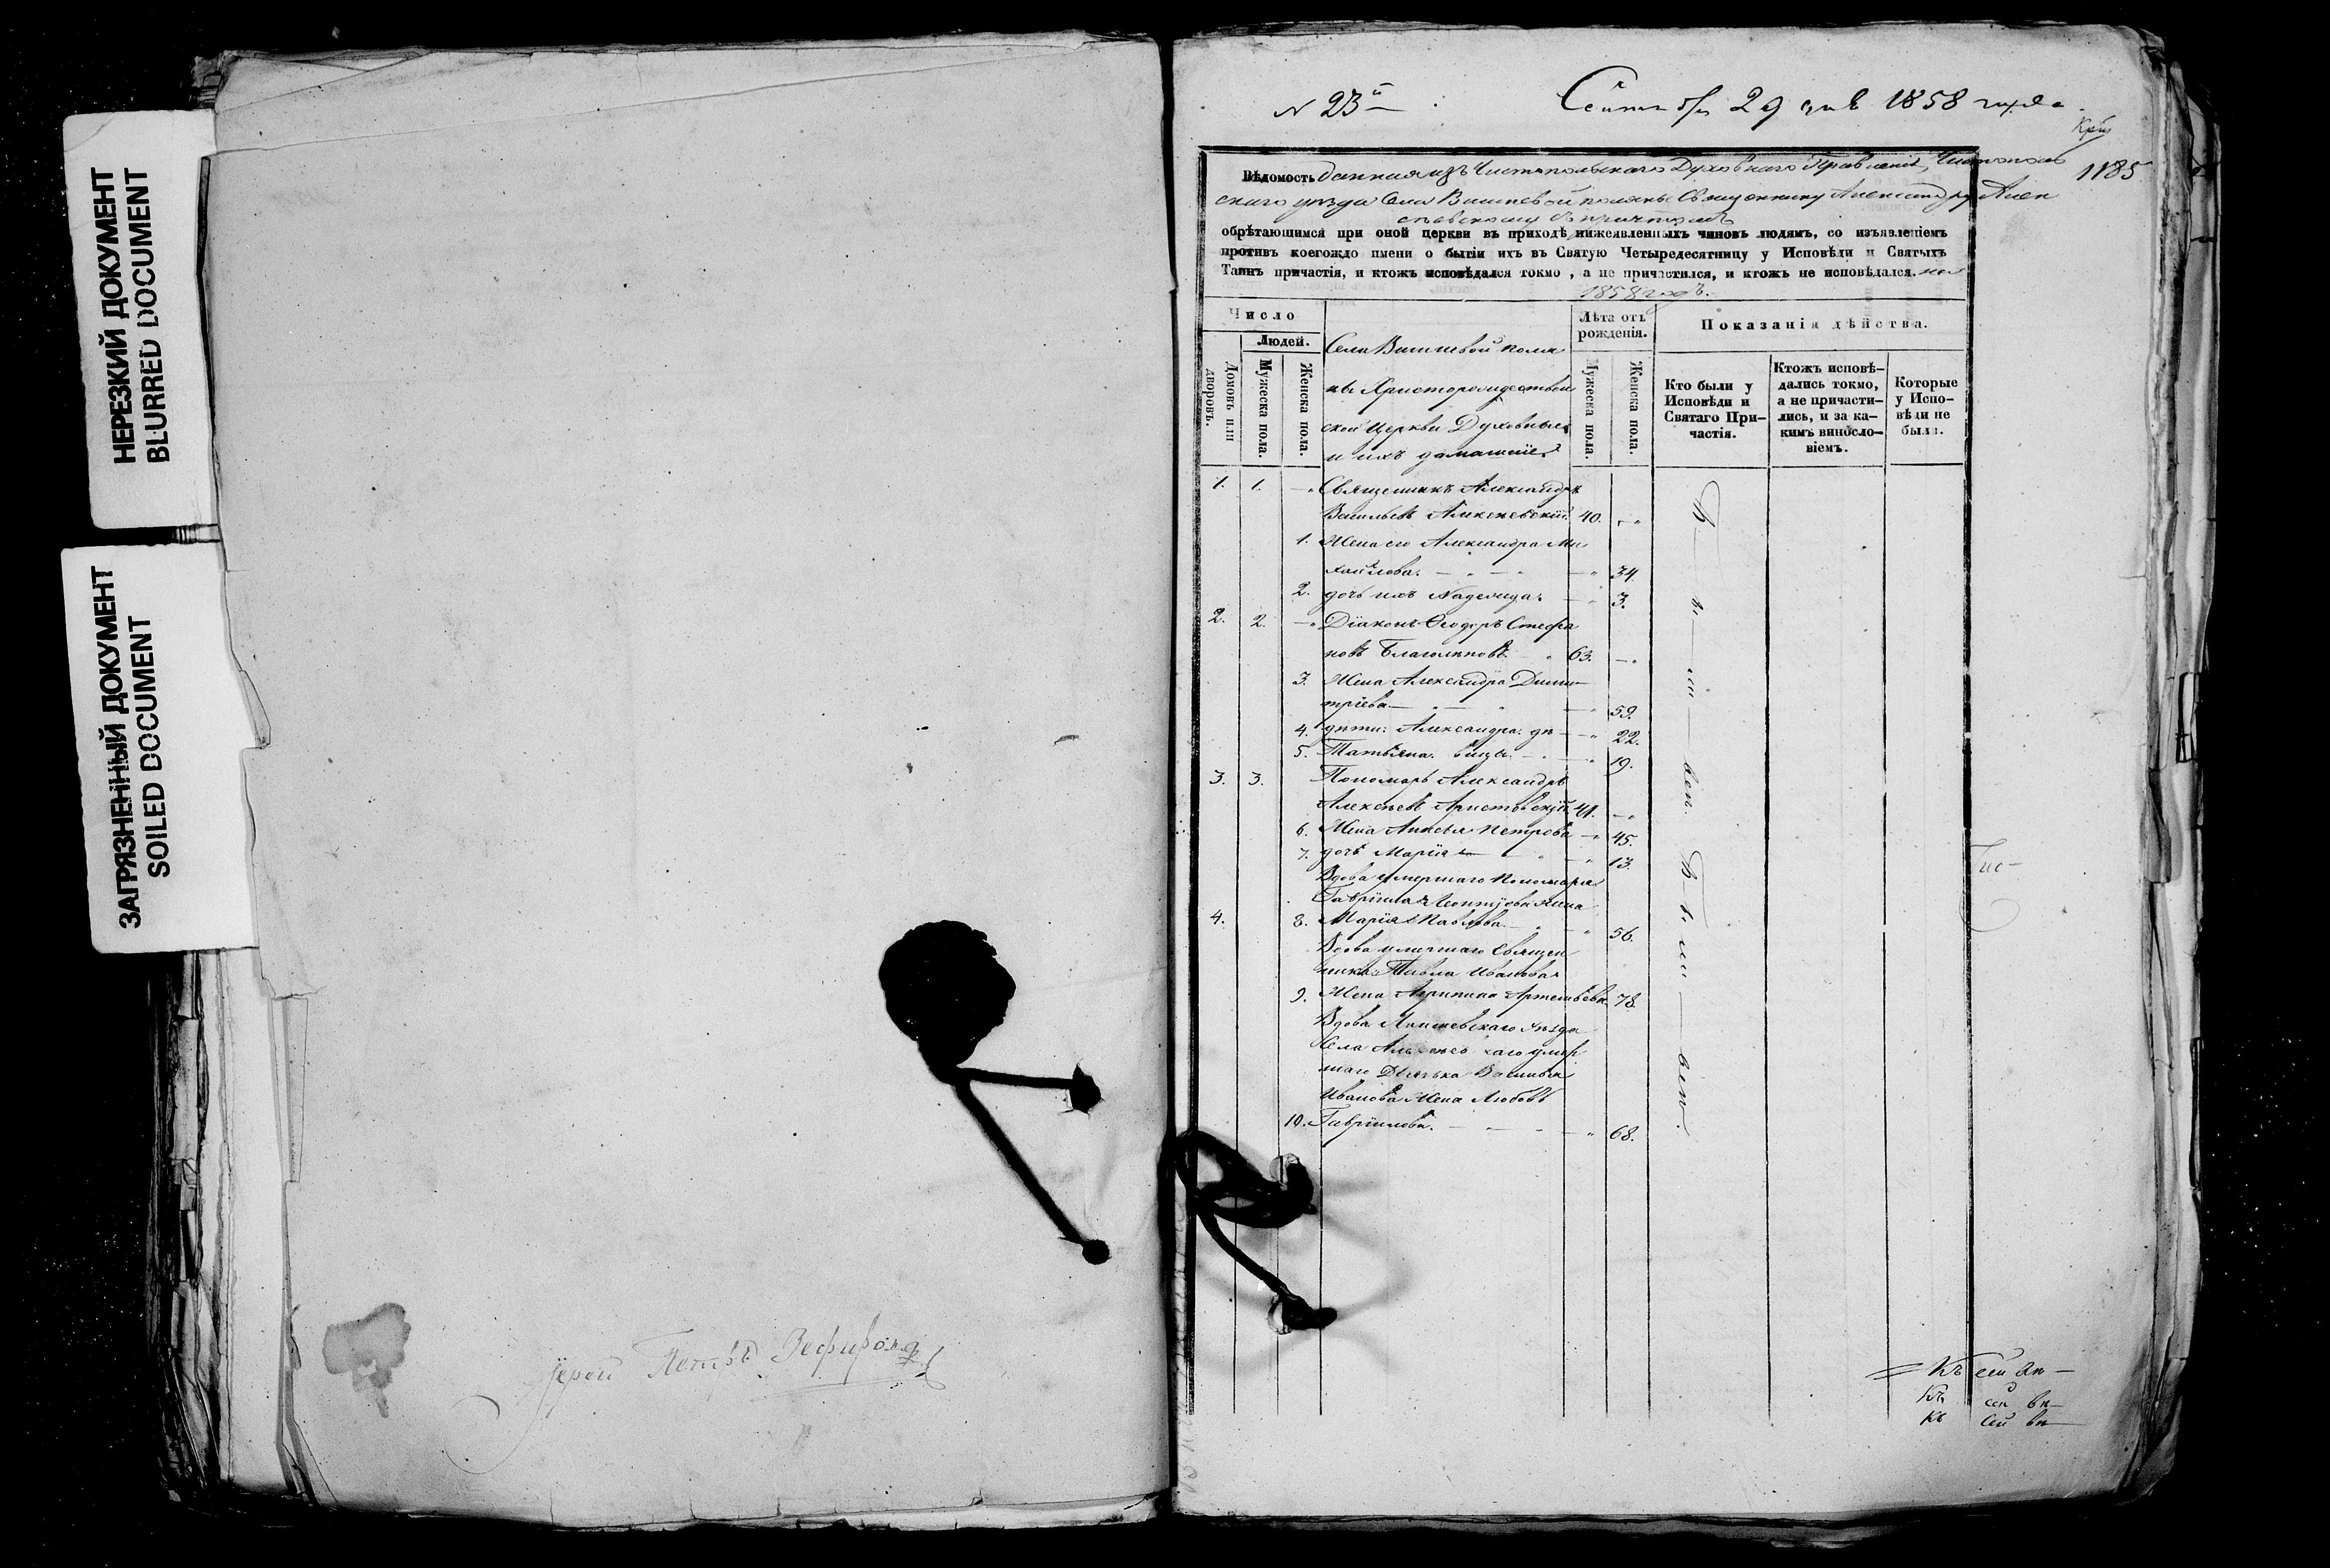 НЕРЕЗКИЙ ДОКУМЕНТ
BLURRED DOCUMENT
ЗАГРЯЗНЕННЫЙ ДОКУМЕНТ
SOILED DOCUMENT
Іерей Петръ Зефировъ
N 23й
Сентября 29 дня 1858 года.
1185
Вѣдомость данная изъ Чистопольскаго Духовнаго Правленія, Чистополь
скаго уѣзда Села Вишневой поляны Священнику Александру Алек
сѣевскому съ причтомъ
обрѣтающимся при оной церкви въ приходѣ нижеявленныхъ чиновъ людямъ, со изъявленіемъ
противъ коегождо имени о бытіи ихъ въ Святую Четыредесятницу у Исповѣди и Святыхъ
Таинъ причастія, и ктожъ исповѣдался токмо, а не причастился, и ктожъ не исповѣдался. на
1858 годъ.
Число
Людей.
Домовъ или дворовъ.
Мужеска пола.
Женска пола.
Села Вишневой поля
ны Христорождествен
ской Церкви Духовные
и ихъ домашніе
Лѣта отъ рожденія.
Мужеска пола.
Женска пола.
Показанія дѣйства.
Кто были у Исповѣди и Святаго При-
частія.
Ктожъ исповѣ-
дались токмо,
а не причасти-
лись, и за ка-
кимъ виносло-
віемъ.
Которые
у Испо-
вѣди не
были.
1. 1. Священникъ Александръ
Васильевъ Алексѣевскій. 40.
1. Жена его Александра Ми
хайлова. 34.
2. дочь ихъ Надежда. 3.
2. 2. Діаконъ Ѳеодоръ Стефа
новъ Благолѣповъ 63.
3. Жена Александра Дими
тріева 59.
4. дѣти: Александра. дѣ 22.
5. Татьяна. вицы. 19.
3. 3. Пономарь Александръ
Алексѣевъ Аристовскій. 41.
6. Жена Петрова 45.
7. дочь Марія 13.
Вдова умершаго Пономаря
Гавріила Леонтьева жена
4. 8. Марія Павлова. 56.
Вдова умершаго Священ
ника Павла Иванова
9. Жена Агрипина Артемьева 78.
Вдова Лаишевскаго уѣзда
Села умер
шаго Дьячка Василья
Иванова Жена Любовь
10. Гавріилова. 68.
Къ сей вѣ
Къ сей вѣ
Къ сей вѣ